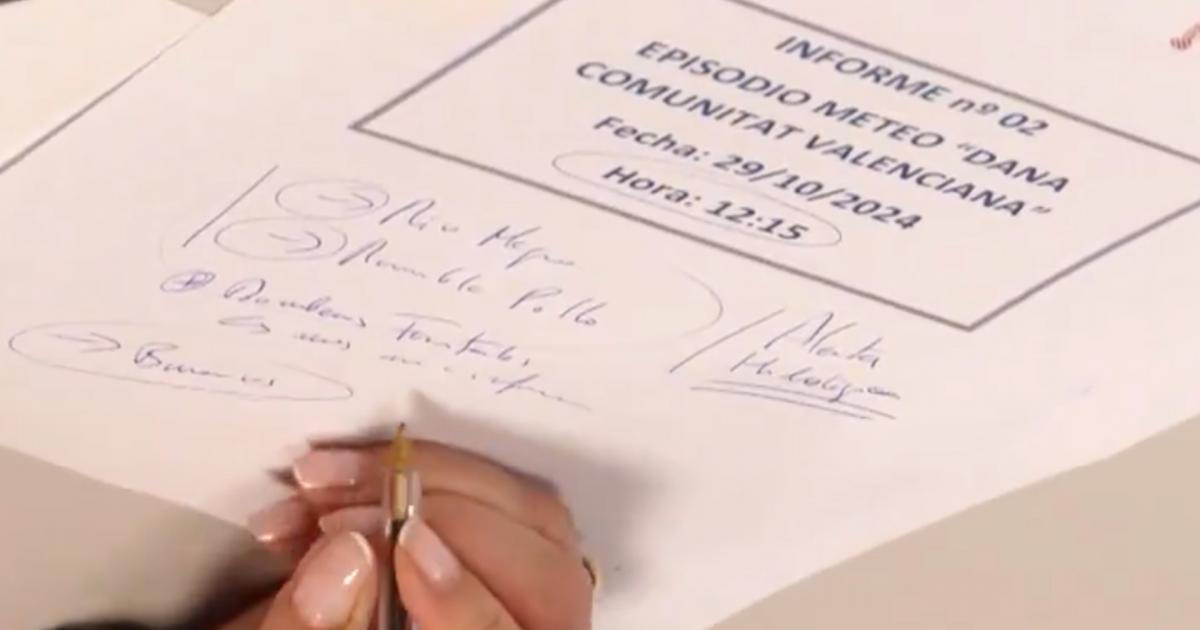 INFORME nº 02
EPISODIO METEO “DANA
COMUNITAT VALENCIANA”
Fecha: 29/10/2024
Hora: 12:15
→ Rio Magro
→ Rambla Pollo
Bombers Forestals
Alerta
Hidrológica